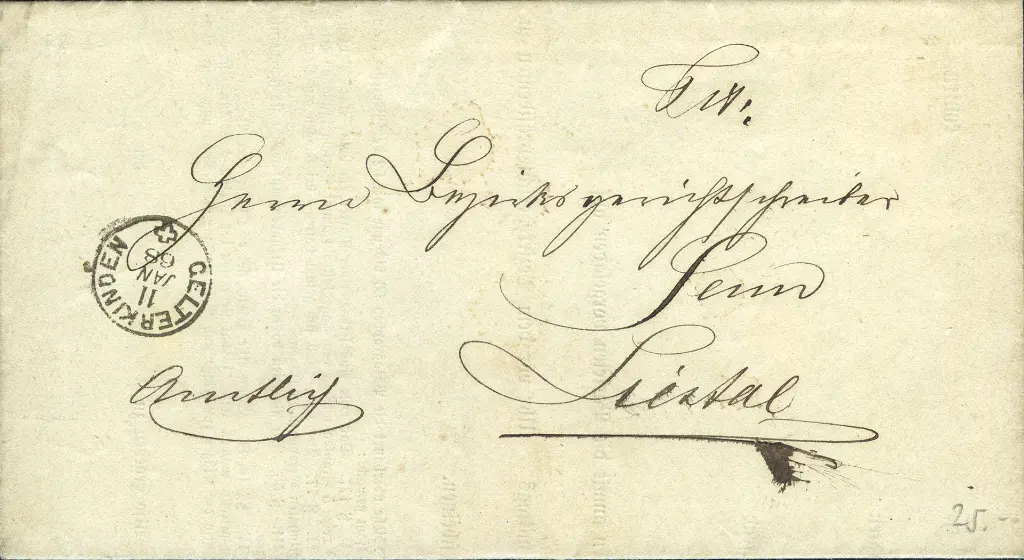 Tit:
Herrn Bezirksgerichtschreiber
Senn
Liestal
Amtlich
GELTERKINDEN
11
JAN
68
25.-